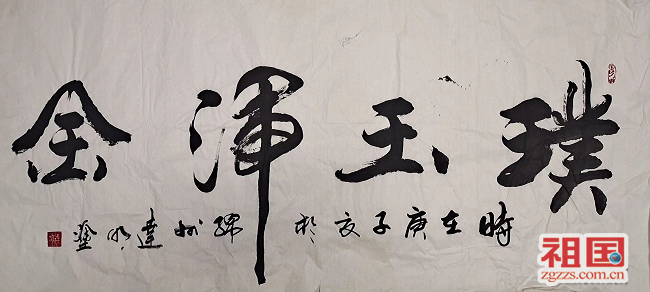 璞玉浑金
時在庚子夏於绵州達明
祖国
zgzzs.com.cn